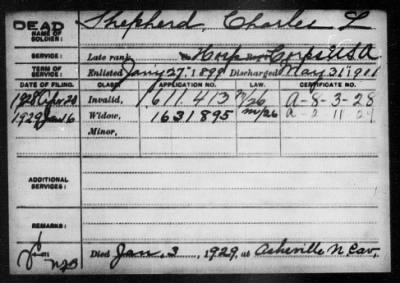 DEAD
NAME OF SOLDIER: Shepherd, Charles L
SERVICE: Late rank, Hosp Corps U.S.A
TERM OF SERVICE: Enlisted Jan'y 27, 1899 Discharged May 31,
DATE OF FILING. CLASS. APPLICATION NO. LAW. CERTIFICATE NO.
1928 Apr 20 Invalid, 1611,413 A-8-3-28
1929 Jan 16 Widow, 1631895 A-2-11-29
Minor,
ADDITIONAL SERVICES:
REMARKS:
Died Jan. 3, 1929, at Asheville N. Car,